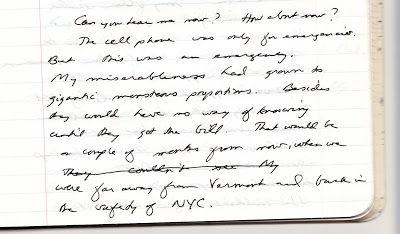 Can you hear me now? How about now?
The cell phone was only for emergencies.
But this was an emergency.
My miserableness had grown to
gigantic monstrous proportions. Besides
they would have no way of knowing
until they got the bill. That would be
a couple of months from now, when we
They couldn't see My
were far away from Vermont and back in
the safety of NYC.